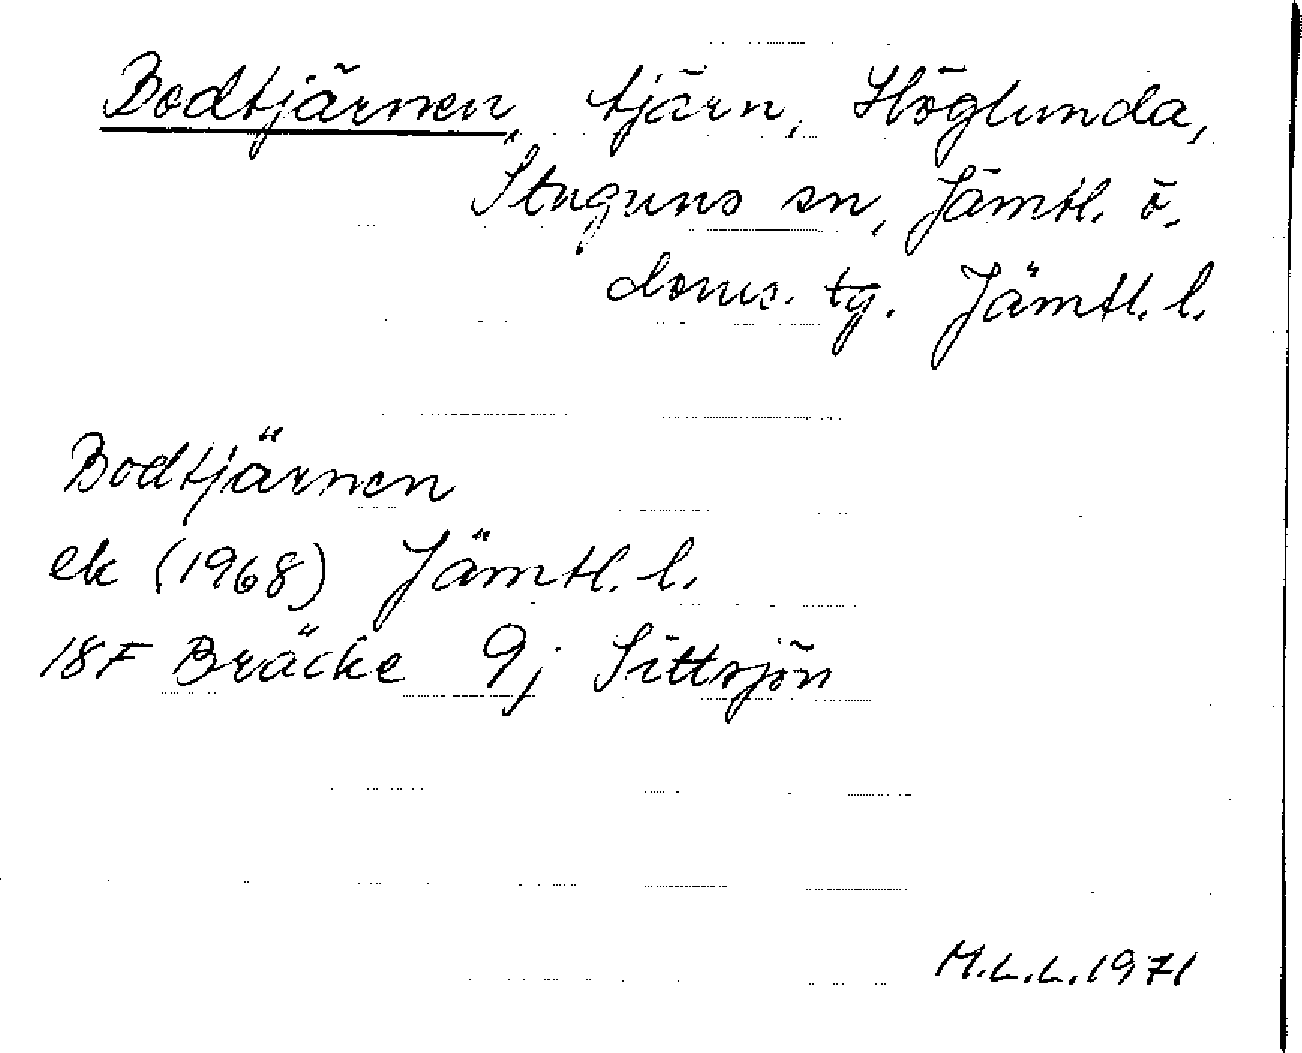 Bodtjärnen, tjärn, Höglunda,
Stuguns sn, Jämtl. ö.
doms. tg. Jämtl. l.
Bodtjärnen
ek (1968) Jämtl. l.
18F Bräcke 9j Sittsjön
M.L.L. 1971